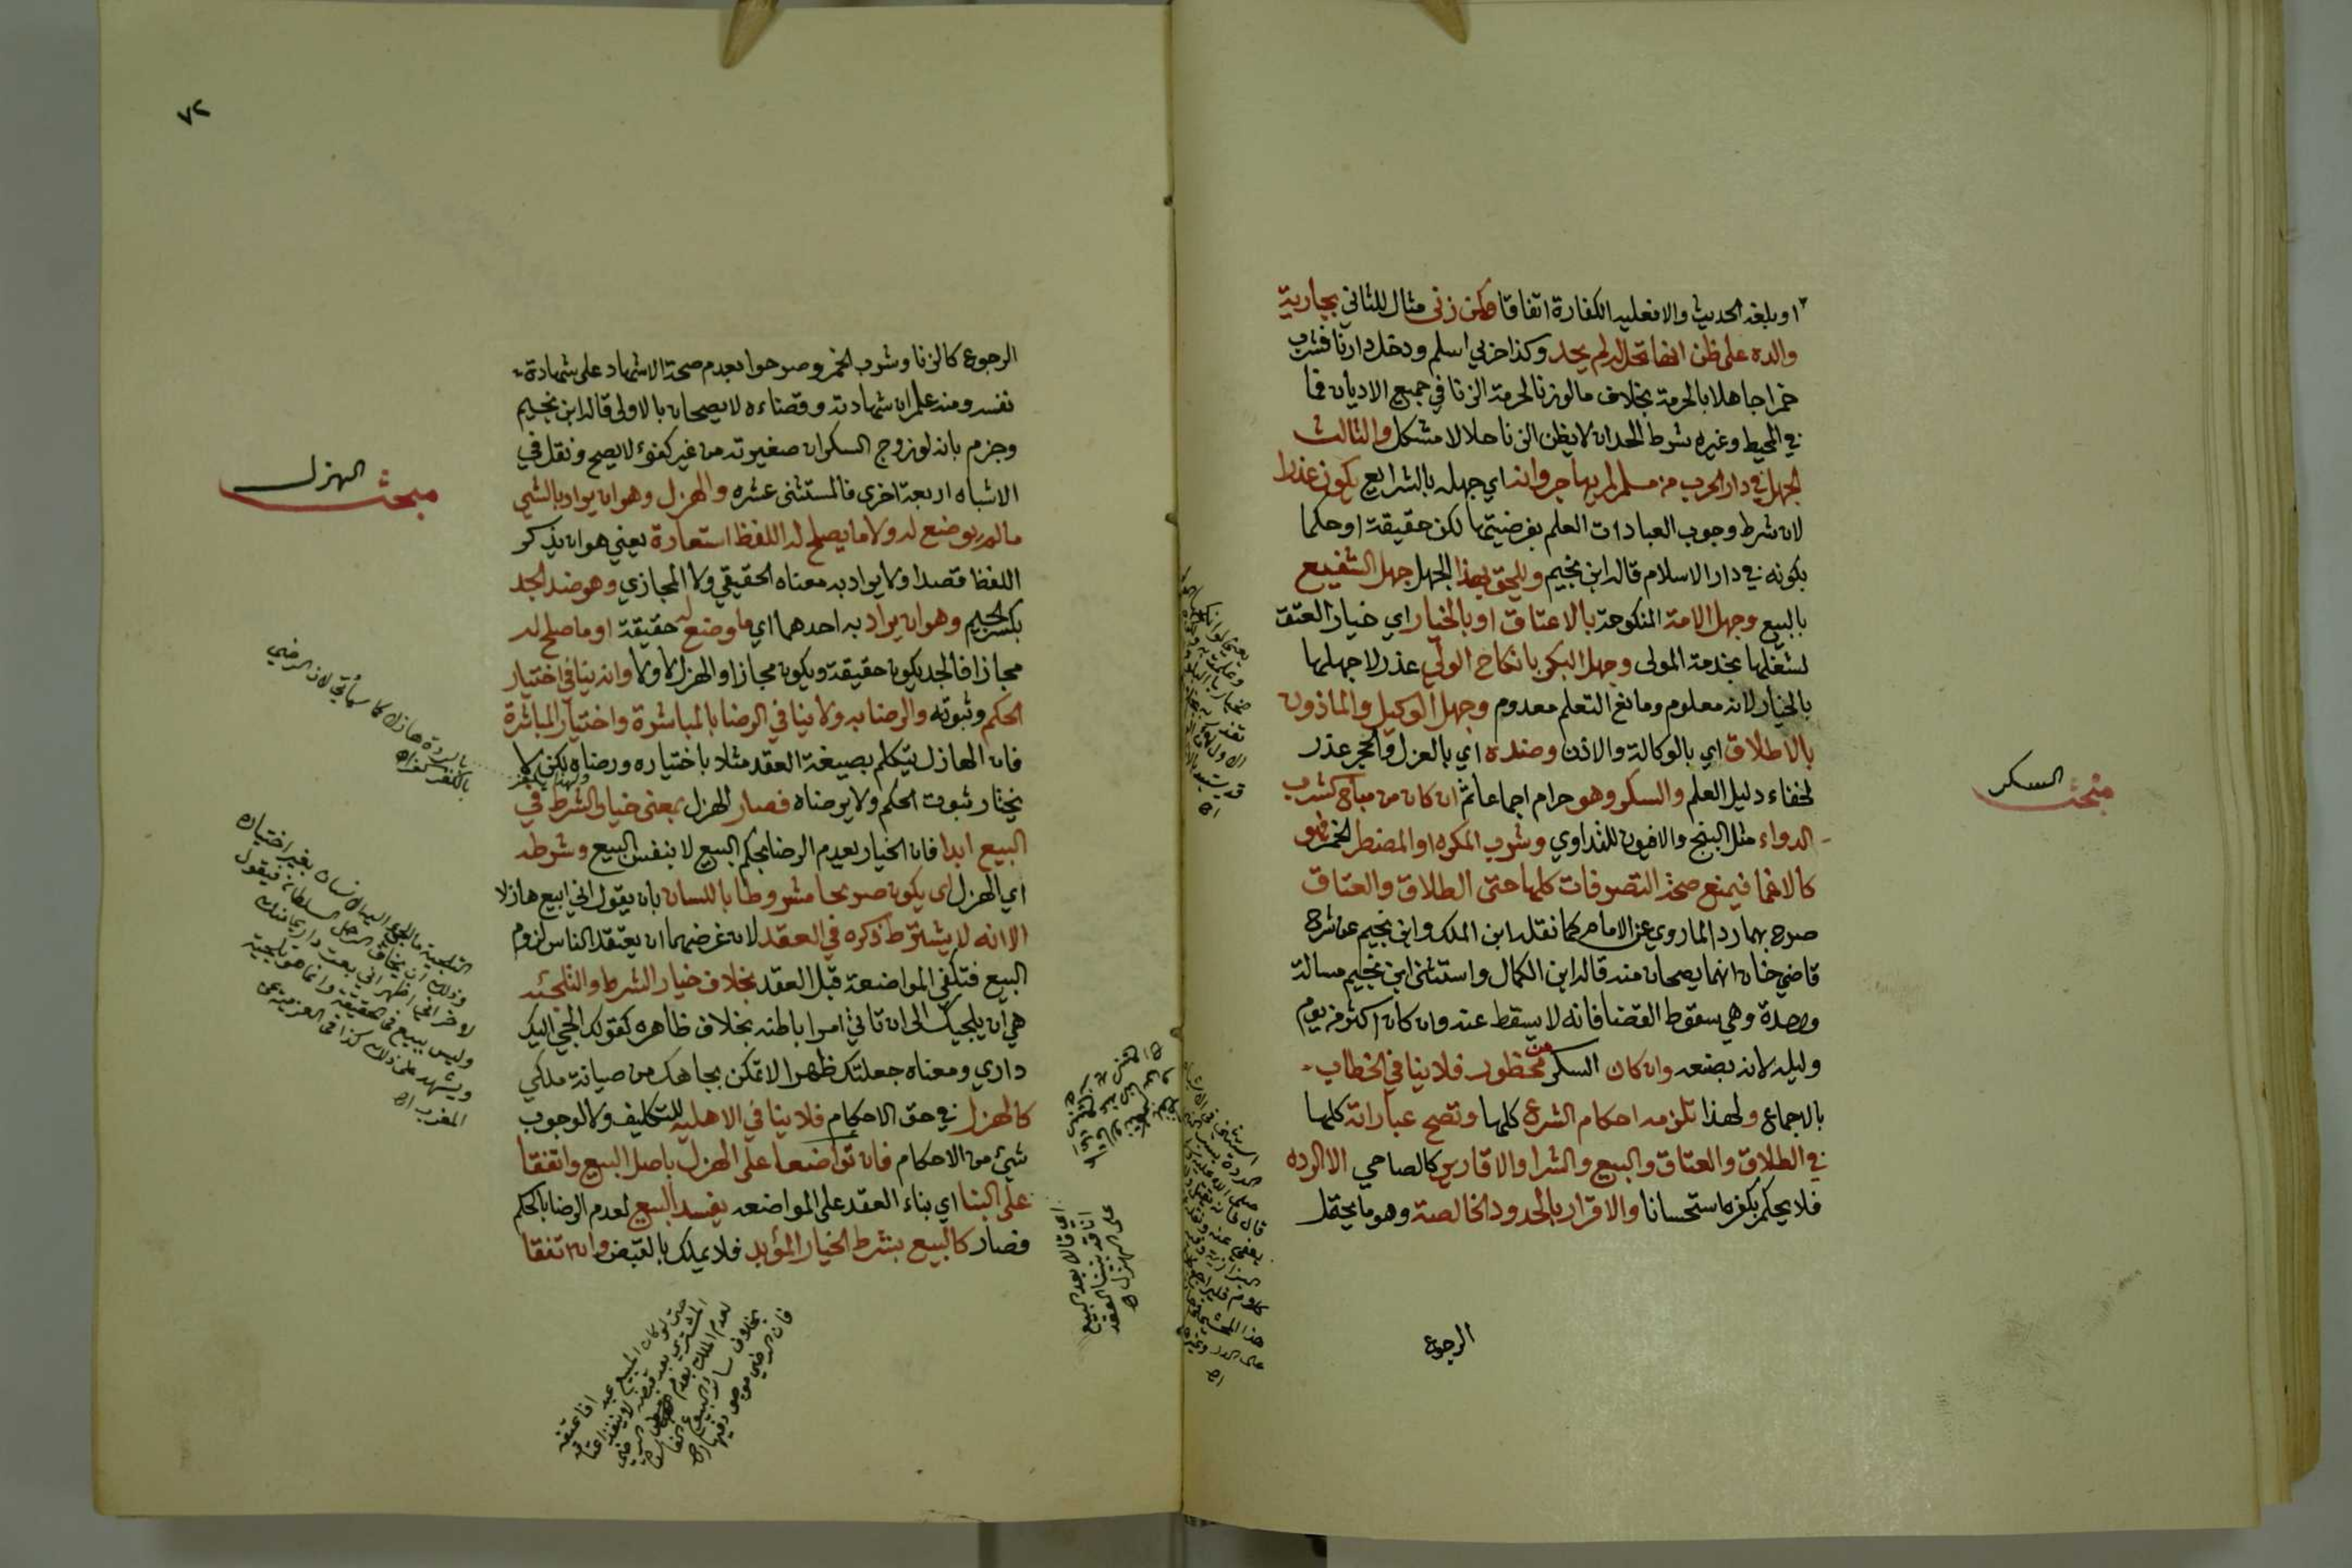 او بلغه الحديث والا فعليه الكفارة اتفاقا وكمن زنى مثال للثاني بجارية
والده على ظن انها تحل له لم يحد وكذا حربي اسلم ودخل دارنا فشرب
خمرا جاهلا بالحرمة بخلاف ما لو زنا لحرمة الزنا في جميع الاديان فما
في المحيط وغيره شرط الحد ان لا يظن الزنا حلالا مشكل والثالث
الجهل في دار الحرب من مسلم لم يهاجر وانه اي جهله بالشرايع يكون عذرا
لان شرط وجوب العبادات العلم بفرضيتها لكن حقيقة او حكما
بكونه في دار الاسلام قاله ابن نجيم ويلحق بهذا الجهل جهل الشفيع
بالبيع وجهل الامة المنكوحة بالاعتاق او بالخيار اي خيار العتق
لشغلها بخدمة المولى وجهل البكر بانكاح الولي عذر لا جهلها
بالخيار لانه معلوم ومانع التعلم معدوم وجهل الوكيل والماذون
بالاطلاق اي بالوكالة والاذن وضده اي بالعزل والحجر عذر
لخفاء دليل العلم والسكر وهو حرام اجماعا ثم ان كان من مباح كشرب
الدواء مثل البنج والافيون للتداوي وشرب المكره او المضطر الخمر فهو
كالاغما فيمنع صحة التصرفات كلها حتى الطلاق والعتاق
صرح بهما رد الماروي عن الامام كما نقله ابن الملك وابن نجيم عن شرح
قاضي خان انهما يصحان منه قاله ابن الكمال واستثنى ابن نجيم مسالة
وحدة وهي سقوط القضا فانه لا يسقط عنه وان كان اكثر من يوم
وليله لانه بصنعه وان كان السكر من محظور فلا ينافي الخطاب
بالاجماع ولهذا تلزمه احكام الشرع كلها وتصح عباراته كلها
في الطلاق والعتاق والبيع والشرا والاقارير كالصاحي الا الرده
فلا يحكم بكفره استحسانا والاقرار بالحدود الخالصة وهو ما يحتمل
الرجوع
مبحث السكر
٧٢
الرجوع كالزنا وشرب الخمر وصرحوا بعدم صحة الاشهاد على شهادة
نفسه ومنه علم ان شهادته وقضاءه لا يصحان بالاولى قاله ابن نجيم
وجزم بانه لو زوج السكران صغيرته من غير كفوء لا يصح ونقل في
الاشباه اربعة اخرى فالمستثنى عشره والهزل وهو ان يراد بالشي
ما لم يوضع له ولا ما يصلح له اللفظ استعارة يعني هو ان يذكر
اللفظ قصدا ولا يراد به معناه الحقيقي ولا المجازي وهو ضد الجد
بكسر الجيم وهو ان يراد به احدهما اي ما وضع له حقيقة او ما صلح له
مجازا فالجد يكون حقيقة ويكون مجازا والهزل لا ولا وانه ينافي اختيار
الحكم وثبوته والرضا به ولا ينافي الرضا بالمباشرة واختيار المباشرة
فان الهازل يتكلم بصيغة العقد مثلا باختياره ورضاه لكن لا
يختار ثبوت الحكم ولا يرضاه فصار الهزل بمعنى خيار الشرط في
البيع ابدا فان الخيار يعدم الرضا بحكم البيع لا بنفس البيع وشرطه
اي الهزل اي يكون صريحا مشروطا باللسان بان يقول اني ابيع هازلا
الا انه لا يشترط ذكره في العقد لان غرضهما ان يعتقد الناس لزوم
البيع فتكفي المواضعة قبل العقد بخلاف خيار الشرط والتلجئه
هي ان يلجيك الى ان تاتي امرا باطنه بخلاف ظاهره كقولك الجي اليك
داري ومعناه جعلتك ظهرا لاتمكن بجاهك من صيانة ملكي
كالهزل في حق الاحكام فلا ينافي الاهلية للتكليف ولا لوجوب
شيء من الاحكام فان تواضعا على الهزل باصل البيع واتفقا
على البنا اي بناء العقد على المواضعه يفسد البيع لعدم الرضا بالحكم
فصار كالبيع بشرط الخيار المؤبد فلا يملك بالقبض وان اتفقا
مبحث الهزل
بالردة هازلا كما سيأتي لان الرضى
بالكفر كفر اه
التلجية ما الجئ اليه الانسان بغير اختياره
وذلك ان يخاف الرجل السلطان فيقول
لاخر اني اظهر اني بعت داري منك
وليس ببيع في الحقيقة وانما هو تلجية
ويشهد على ذلك كذا في العزمية عن
المغرب اه
اي قالا بعد البيع
انا قد بنينا العقد
على الهزل اه
حتى لو كان المبيع عبدا فاعتقه
المشتري بعد قبضه لا ينفذ اعتاقه